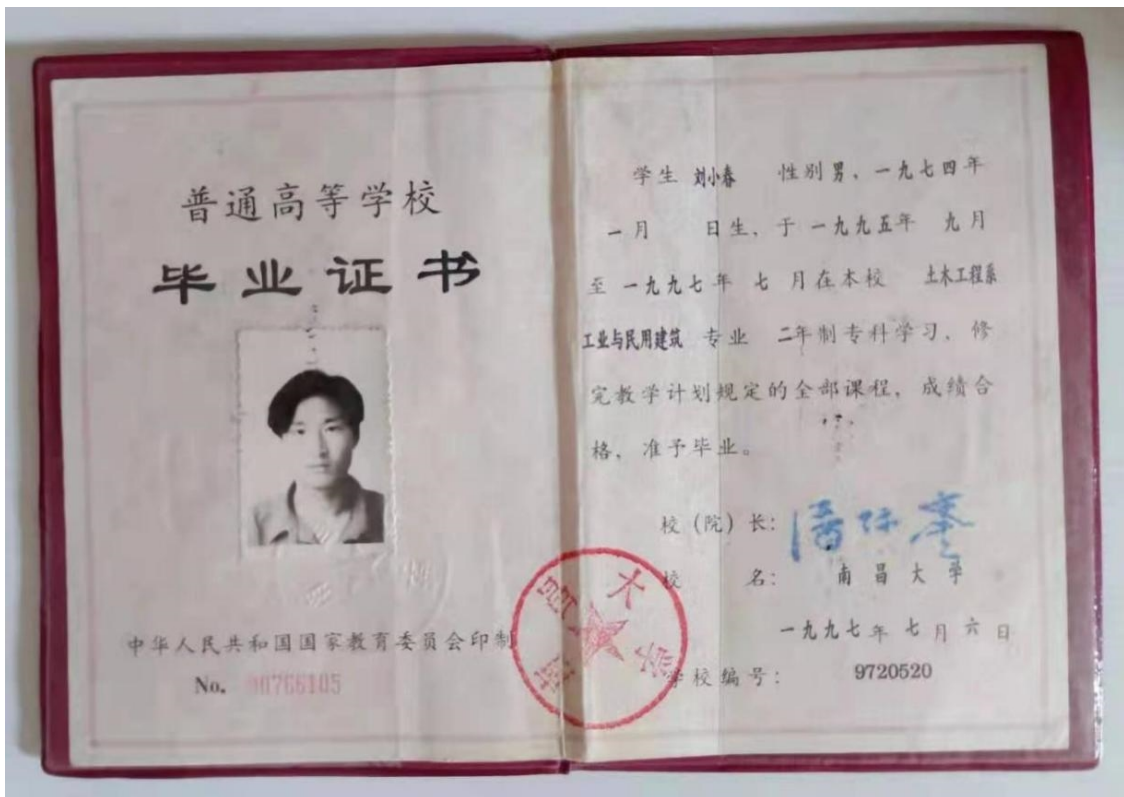 普通高等学校
毕业证书
中华人民共和国国家教育委员会印制
No. 90766105
学生 刘小春 性别 男、一九七四年
一月 日生、于 一九九五年 九月
至 一九九七年 七 月在本校 土木工程系
工业与民用建筑 专业 二年制专科学习、修
完教学计划规定的全部课程，成绩合
格、准予毕业。
校（院）长：潘际銮
校 名： 南昌大学
一九九七年七月六日
学校编号： 9720520
南昌大学